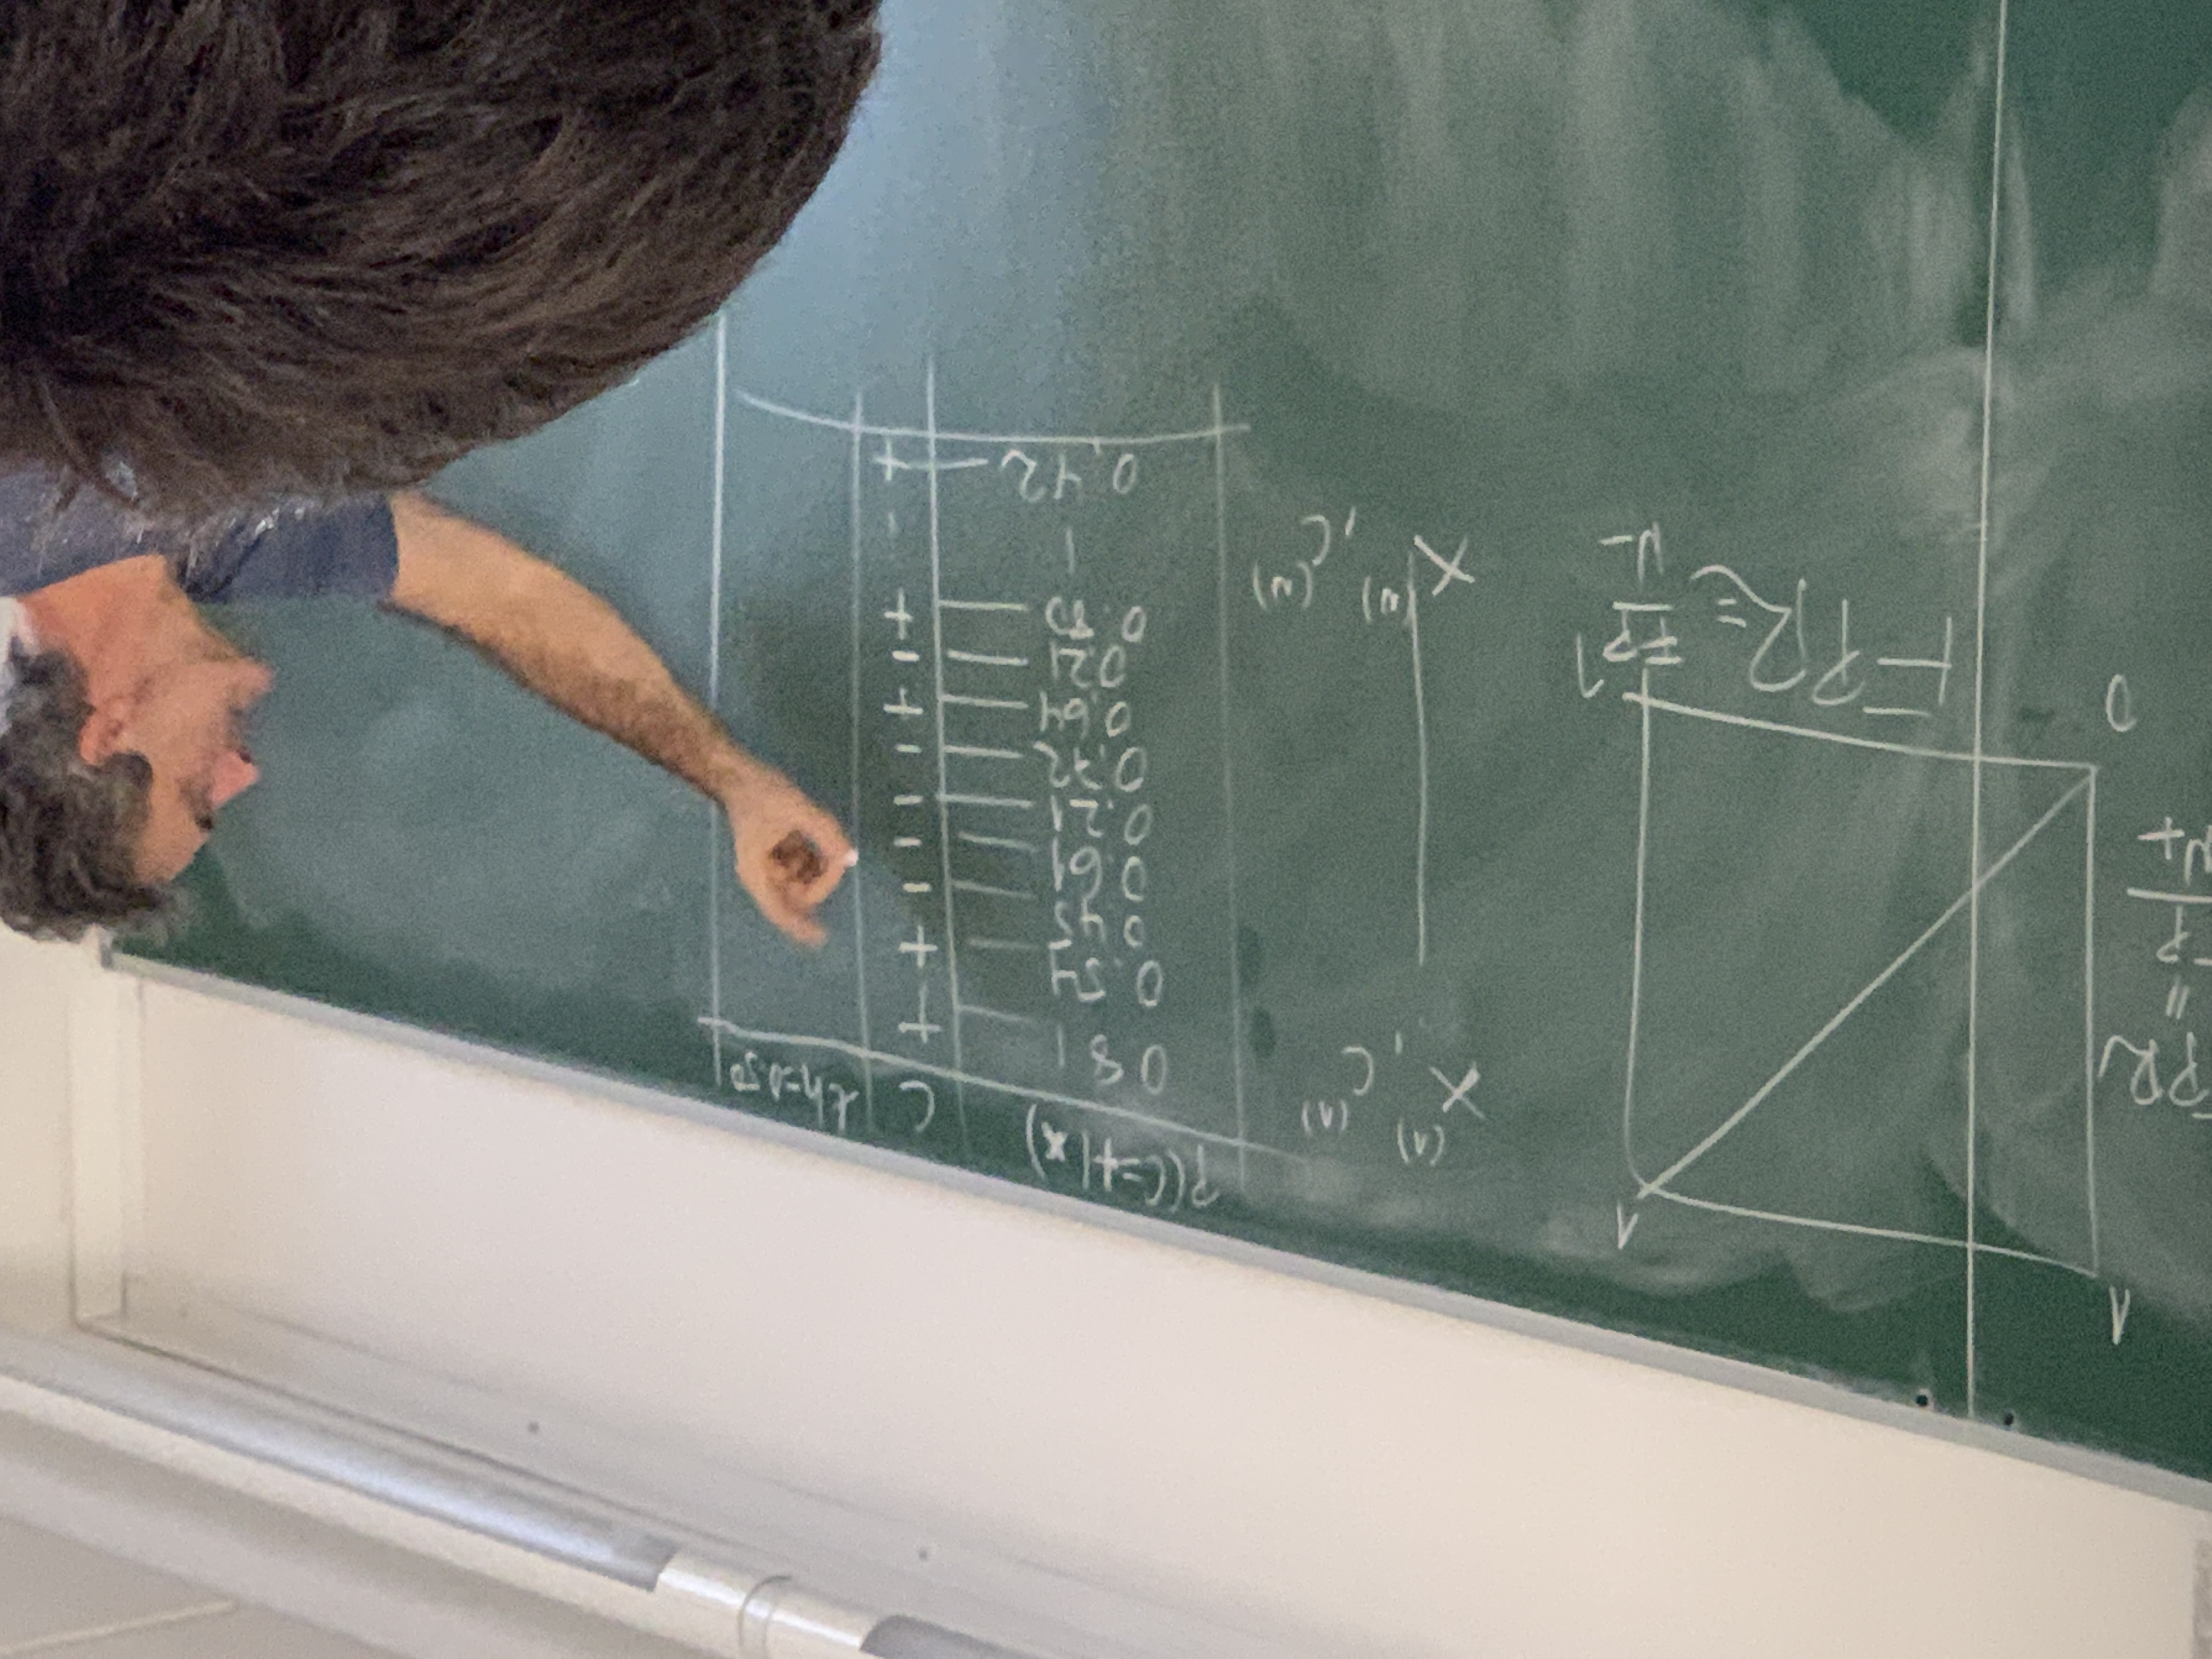 1
1
PR
"
P
N+
0
FPR = FP/N-
1
x^(1), c^(1)
x^(N), c^(N)
P(C=+|x) C th=0.50
0.81 — +
0.54 — +
0.45 — -
0.61 — -
0.21 — -
0.72 — -
0.64 — +
0.21 — -
0.80 — +
0.42 — +